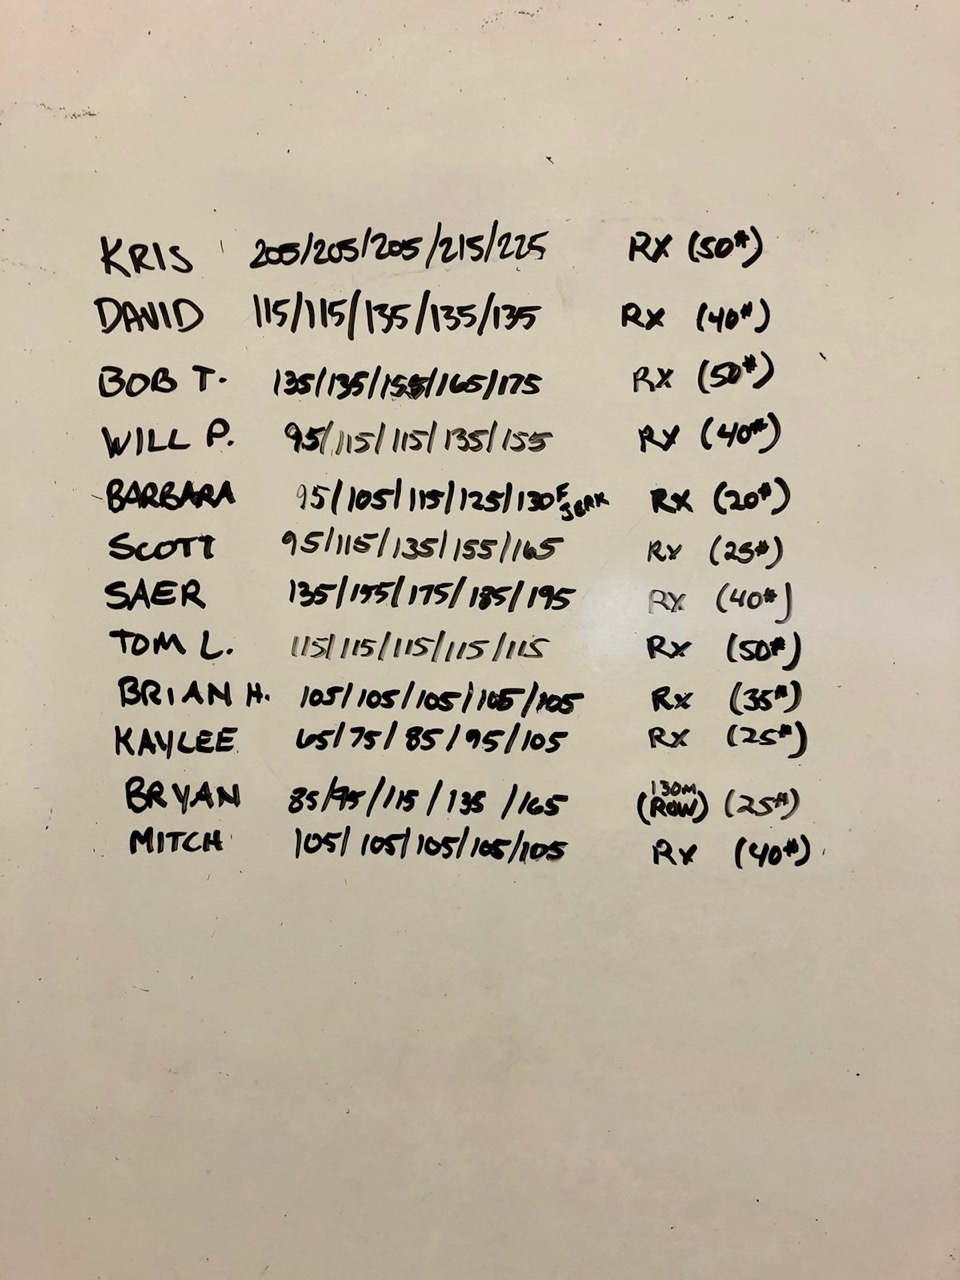 KRIS 205/205/205/215/225 RX (50#)
DAVID 115/115/135/135/135 RX (40#)
BOB T. 135/135/155/165/175 RX (50#)
WILL P. 95/115/115/135/155 RX (40#)
BARBARA 95/105/115/125/130 F JERK RX (20#)
SCOTT 95/115/135/155/165 RX (25#)
SAER 135/155/175/185/195 RX (40#)
TOM L. 115/115/115/115/115 RX (50#)
BRIAN H. 105/105/105/105/105 RX (35#)
KAYLEE 65/75/85/95/105 RX (25#)
BRYAN 85/95/115/135/165 130M (ROW) (25#)
MITCH 105/105/105/105/105 RX (40#)